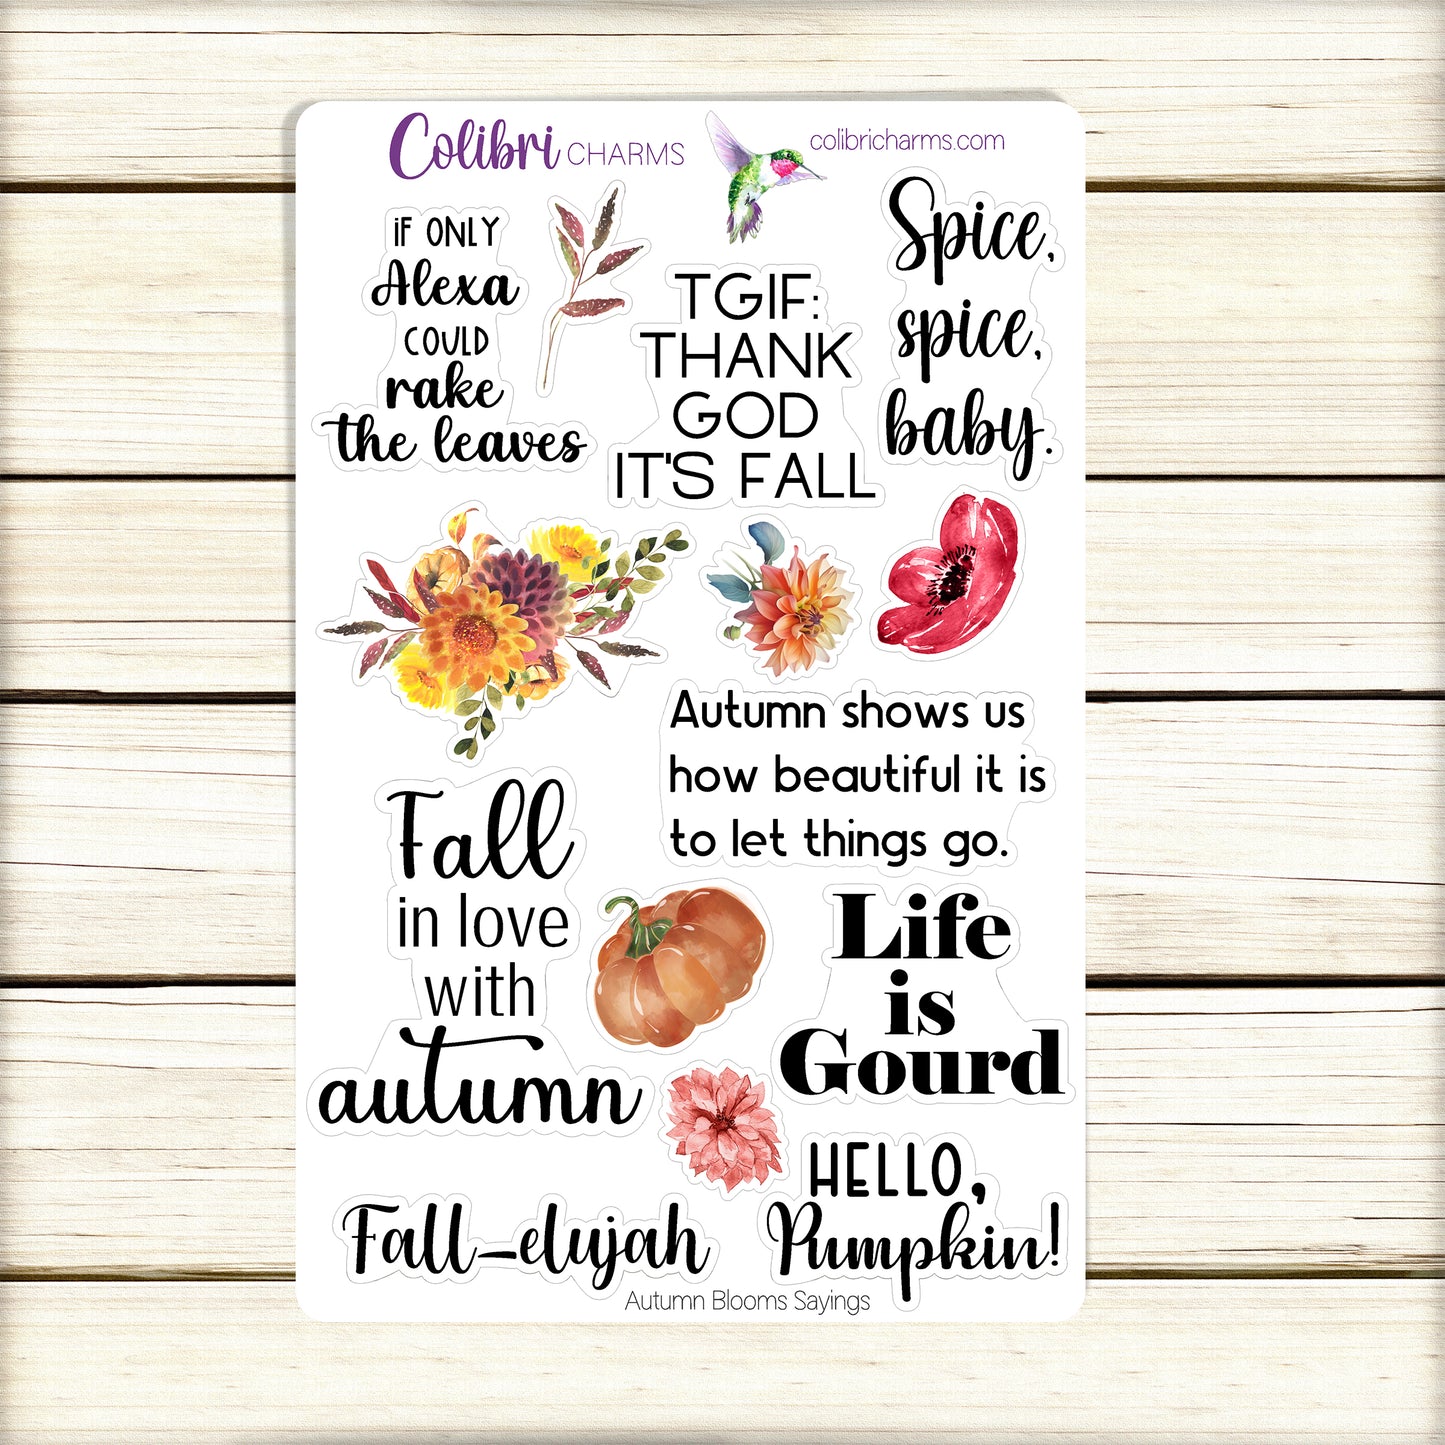 Colibri CHARMS
colibricharms.com
iF ONLY
Alexa
COULD
rake
the leaves
TGIF:
THANK
GOD
IT'S FALL
Spice,
spice,
baby.
Autumn shows us
how beautiful it is
to let things go.
Fall
in love
with
autumn
Life
is
Gourd
HELLO,
Pumpkin!
Fall-elujah
Autumn Blooms Sayings